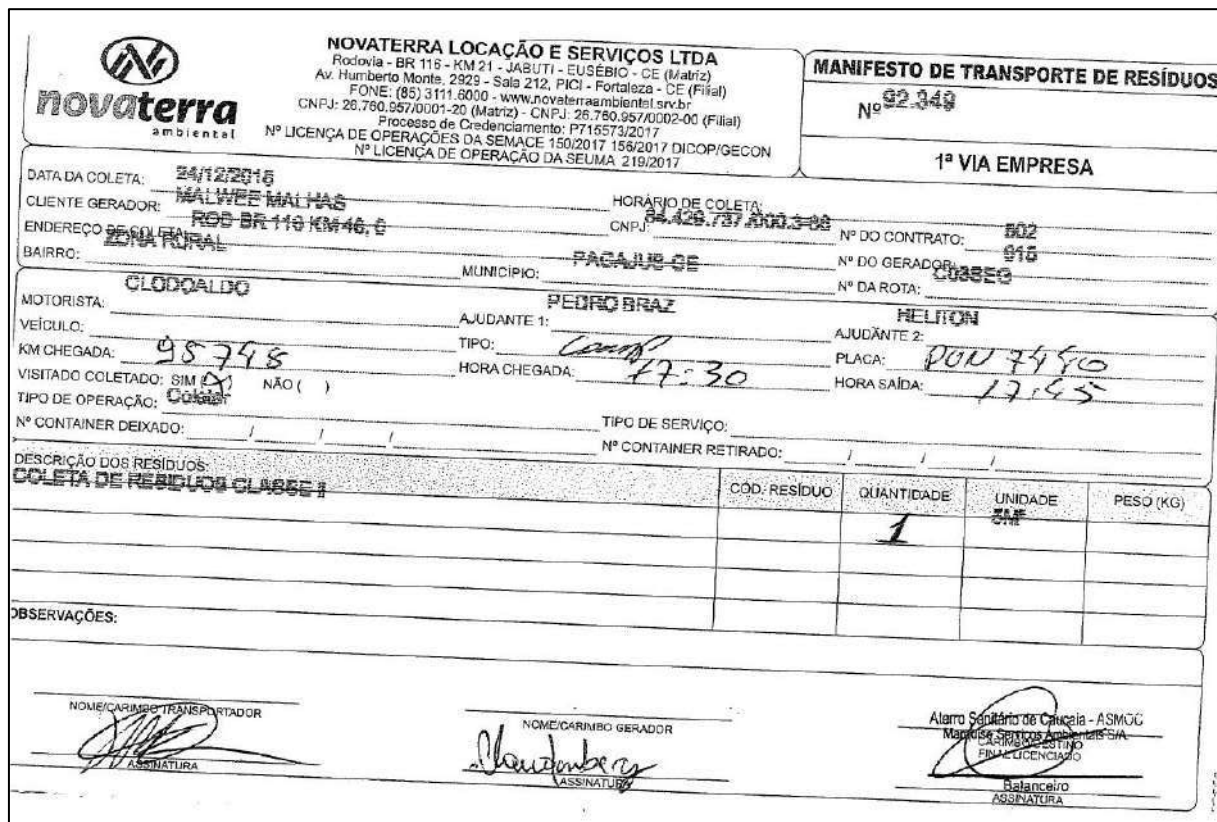 novaterra
ambiental
NOVATERRA LOCAÇÃO E SERVIÇOS LTDA
Rodovia - BR 116 - KM 21 - JABUTI - EUSÉBIO - CE (Matriz)
Av. Humberto Monte, 2929 - Sala 212, PICI - Fortaleza - CE (Filial)
FONE: (85) 3111.6000 - www.novaterraambiental.srv.br
CNPJ: 26.760.957/0001-20 (Matriz) - CNPJ: 26.760.957/0002-00 (Filial)
Processo de Credenciamento: P715573/2017
Nº LICENÇA DE OPERAÇÕES DA SEMACE 150/2017 156/2017 DICOP/GECON
Nº LICENÇA DE OPERAÇÃO DA SEUMA 219/2017
MANIFESTO DE TRANSPORTE DE RESÍDUOS
Nº 92.349
1ª VIA EMPRESA
DATA DA COLETA: 24/12/2018 HORÁRIO DE COLETA:
CLIENTE GERADOR: MALWEE MALHAS CNPJ: Nº DO CONTRATO: 502
ENDEREÇO DE COLETA: ROD BR 116 KM 46, 0 Nº DO GERADOR: 915
BAIRRO: ZONA RURAL MUNICÍPIO: PACAJUS CE Nº DA ROTA:
MOTORISTA: CLODOALDO AJUDANTE 1: PEDRO BRAZ AJUDANTE 2: HELITON
VEÍCULO: TIPO: PLACA:
KM CHEGADA: 95748 HORA CHEGADA: 17:30 HORA SAÍDA: 17:45
VISITADO COLETADO: SIM (X) NÃO ( )
TIPO DE OPERAÇÃO: Coletar TIPO DE SERVIÇO:
Nº CONTAINER DEIXADO: / / / Nº CONTAINER RETIRADO: / / /
DESCRIÇÃO DOS RESÍDUOS: CÓD. RESÍDUO QUANTIDADE UNIDADE PESO (KG)
COLETA DE RESIDUOS CLASSE II 1
OBSERVAÇÕES:
NOME/CARIMBO TRANSPORTADOR
ASSINATURA
NOME/CARIMBO GERADOR
ASSINATURA
Aterro Sanitário de Caucaia - ASMOC
Marquise Serviços Ambientais S/A
CARIMBO/DESTINO
FINAL LICENCIADO
Balanceiro
ASSINATURA